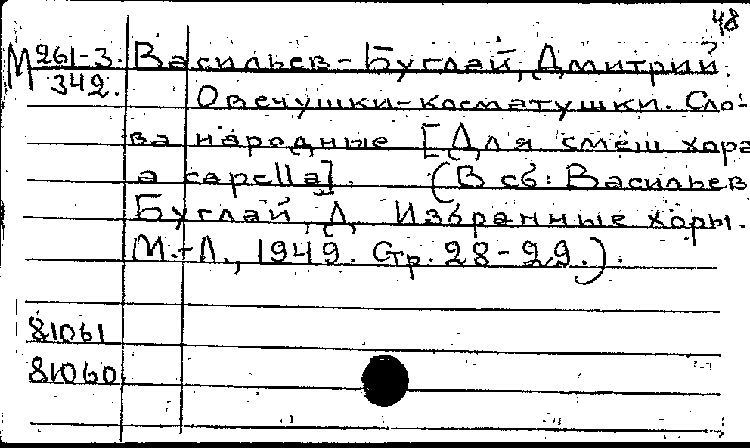 48
М 261-3. Васильев-Буглай, Дмитрий.
342.
Овечушки-косматушки. Сло-
ва народные [Для смеш хора
a capella]. (В сб: Васильев
Буглай, Д. Избранные хоры.
М.-Л., 1949. Стр. 28-29.).
81061
81060